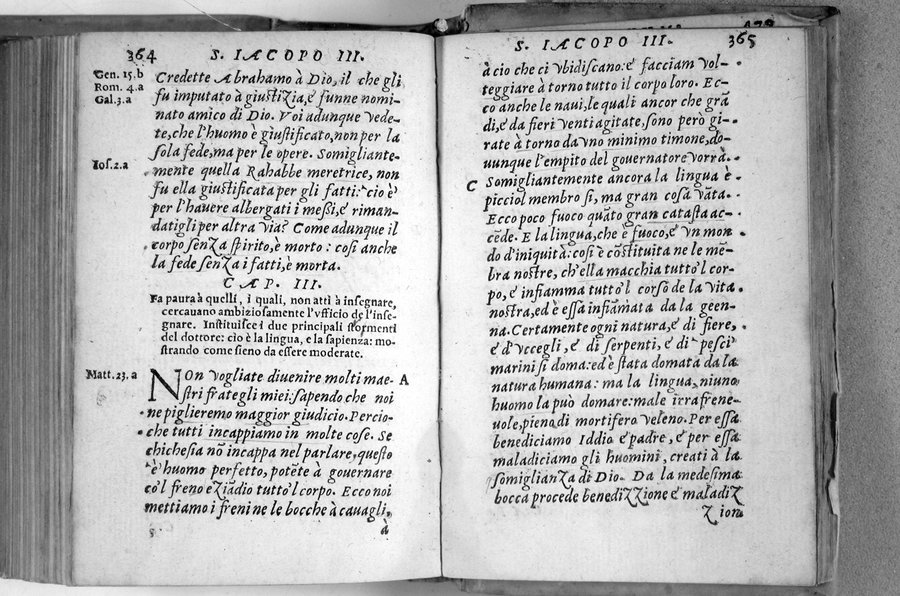 364 S. IACOPO III.
Gen. 15.b
Rom. 4.a
Gal.3.a
Credette Abrahamo à Dio, il che gli
fu imputato à giustizia, e funne nomi-
nato amico di Dio. Voi adunque vede-
te, che l'huomo è giustificato, non per la
sola fede, ma per le opere. Somigliante-
Ios.2.a
mente quella Rahabbe meretrice, non
fu ella giustificata per gli fatti: cio è
per l'hauere albergati i messi, e riman-
datigli per altra via? Come adunque il
corpo senza spirito, è morto: cosi anche
la fede senza i fatti, è morta.
CAP. III.
Fa paura à quelli, i quali, non atti à insegnare,
cercauano ambiziosamente l'vfficio de l'inse-
gnare. Instituisce i due principali stormenti
del dottore: cio è la lingua, e la sapienza: mo-
strando come sieno da essere moderate.
Matt. 23.a
NOn vogliate diuenire molti mae- A
stri frategli miei: sapendo che noi
ne piglieremo maggior giudicio. Percio-
che tutti incappiamo in molte cose. Se
chichesia nō incappa nel parlare, questo
è huomo perfetto, potēte à gouernare
co'l freno eziādio tutto'l corpo. Ecco noi
mettiamo i freni ne le bocche à cauagli,
à
S. IACOPO III. 365
à cio che ci vbidiscano: e facciam vol-
teggiare à torno tutto il corpo loro. Ec-
co anche le naui, le quali ancor che grā
di, e da fieri venti agitate, sono però gi-
rate à torno da vno minimo timone, do-
uunque l'empito del gouernatore vorrà.
C Somigliantemente ancora la lingua è
picciol membro si, ma gran cosa vāta.
Ecco poco fuoco quāto gran catasta ac-
cēde. E la lingua, che è fuoco, e vn mon
do d'iniquità: cosi è cōstituita ne le mē-
bra nostre, ch'ella macchia tutto'l cor-
po, e infiamma tutto'l corso de la vita
nostra, ed è essa infiāmata da la geen-
na. Certamente ogni natura, e di fiere,
e d'vccegli, e di serpenti, e di pesci
marini si doma: ed è stata domata da la
natura humana: ma la lingua, niuno
huomo la può domare: male irrafrene-
uole, pieno di mortifero veleno. Per essa
benediciamo Iddio e padre, e per essa
maladiciamo gli huomini, creati à la
somiglianza di Dio. Da la medesima
bocca procede benedizzione e maladiz
zione